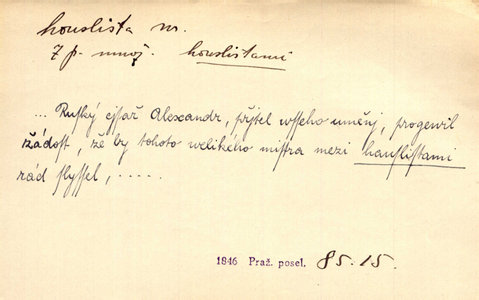 houslista m.
7 p. množ. houslistami
... Ruſký cyſař Alexandr, přjtel wſſeho uměnj, progewil
žádoſt, že by tohoto welikého miſtra mezi hauſliſtami
rád ſlyſſel, .....
1846 Praž. posel. 85.15.